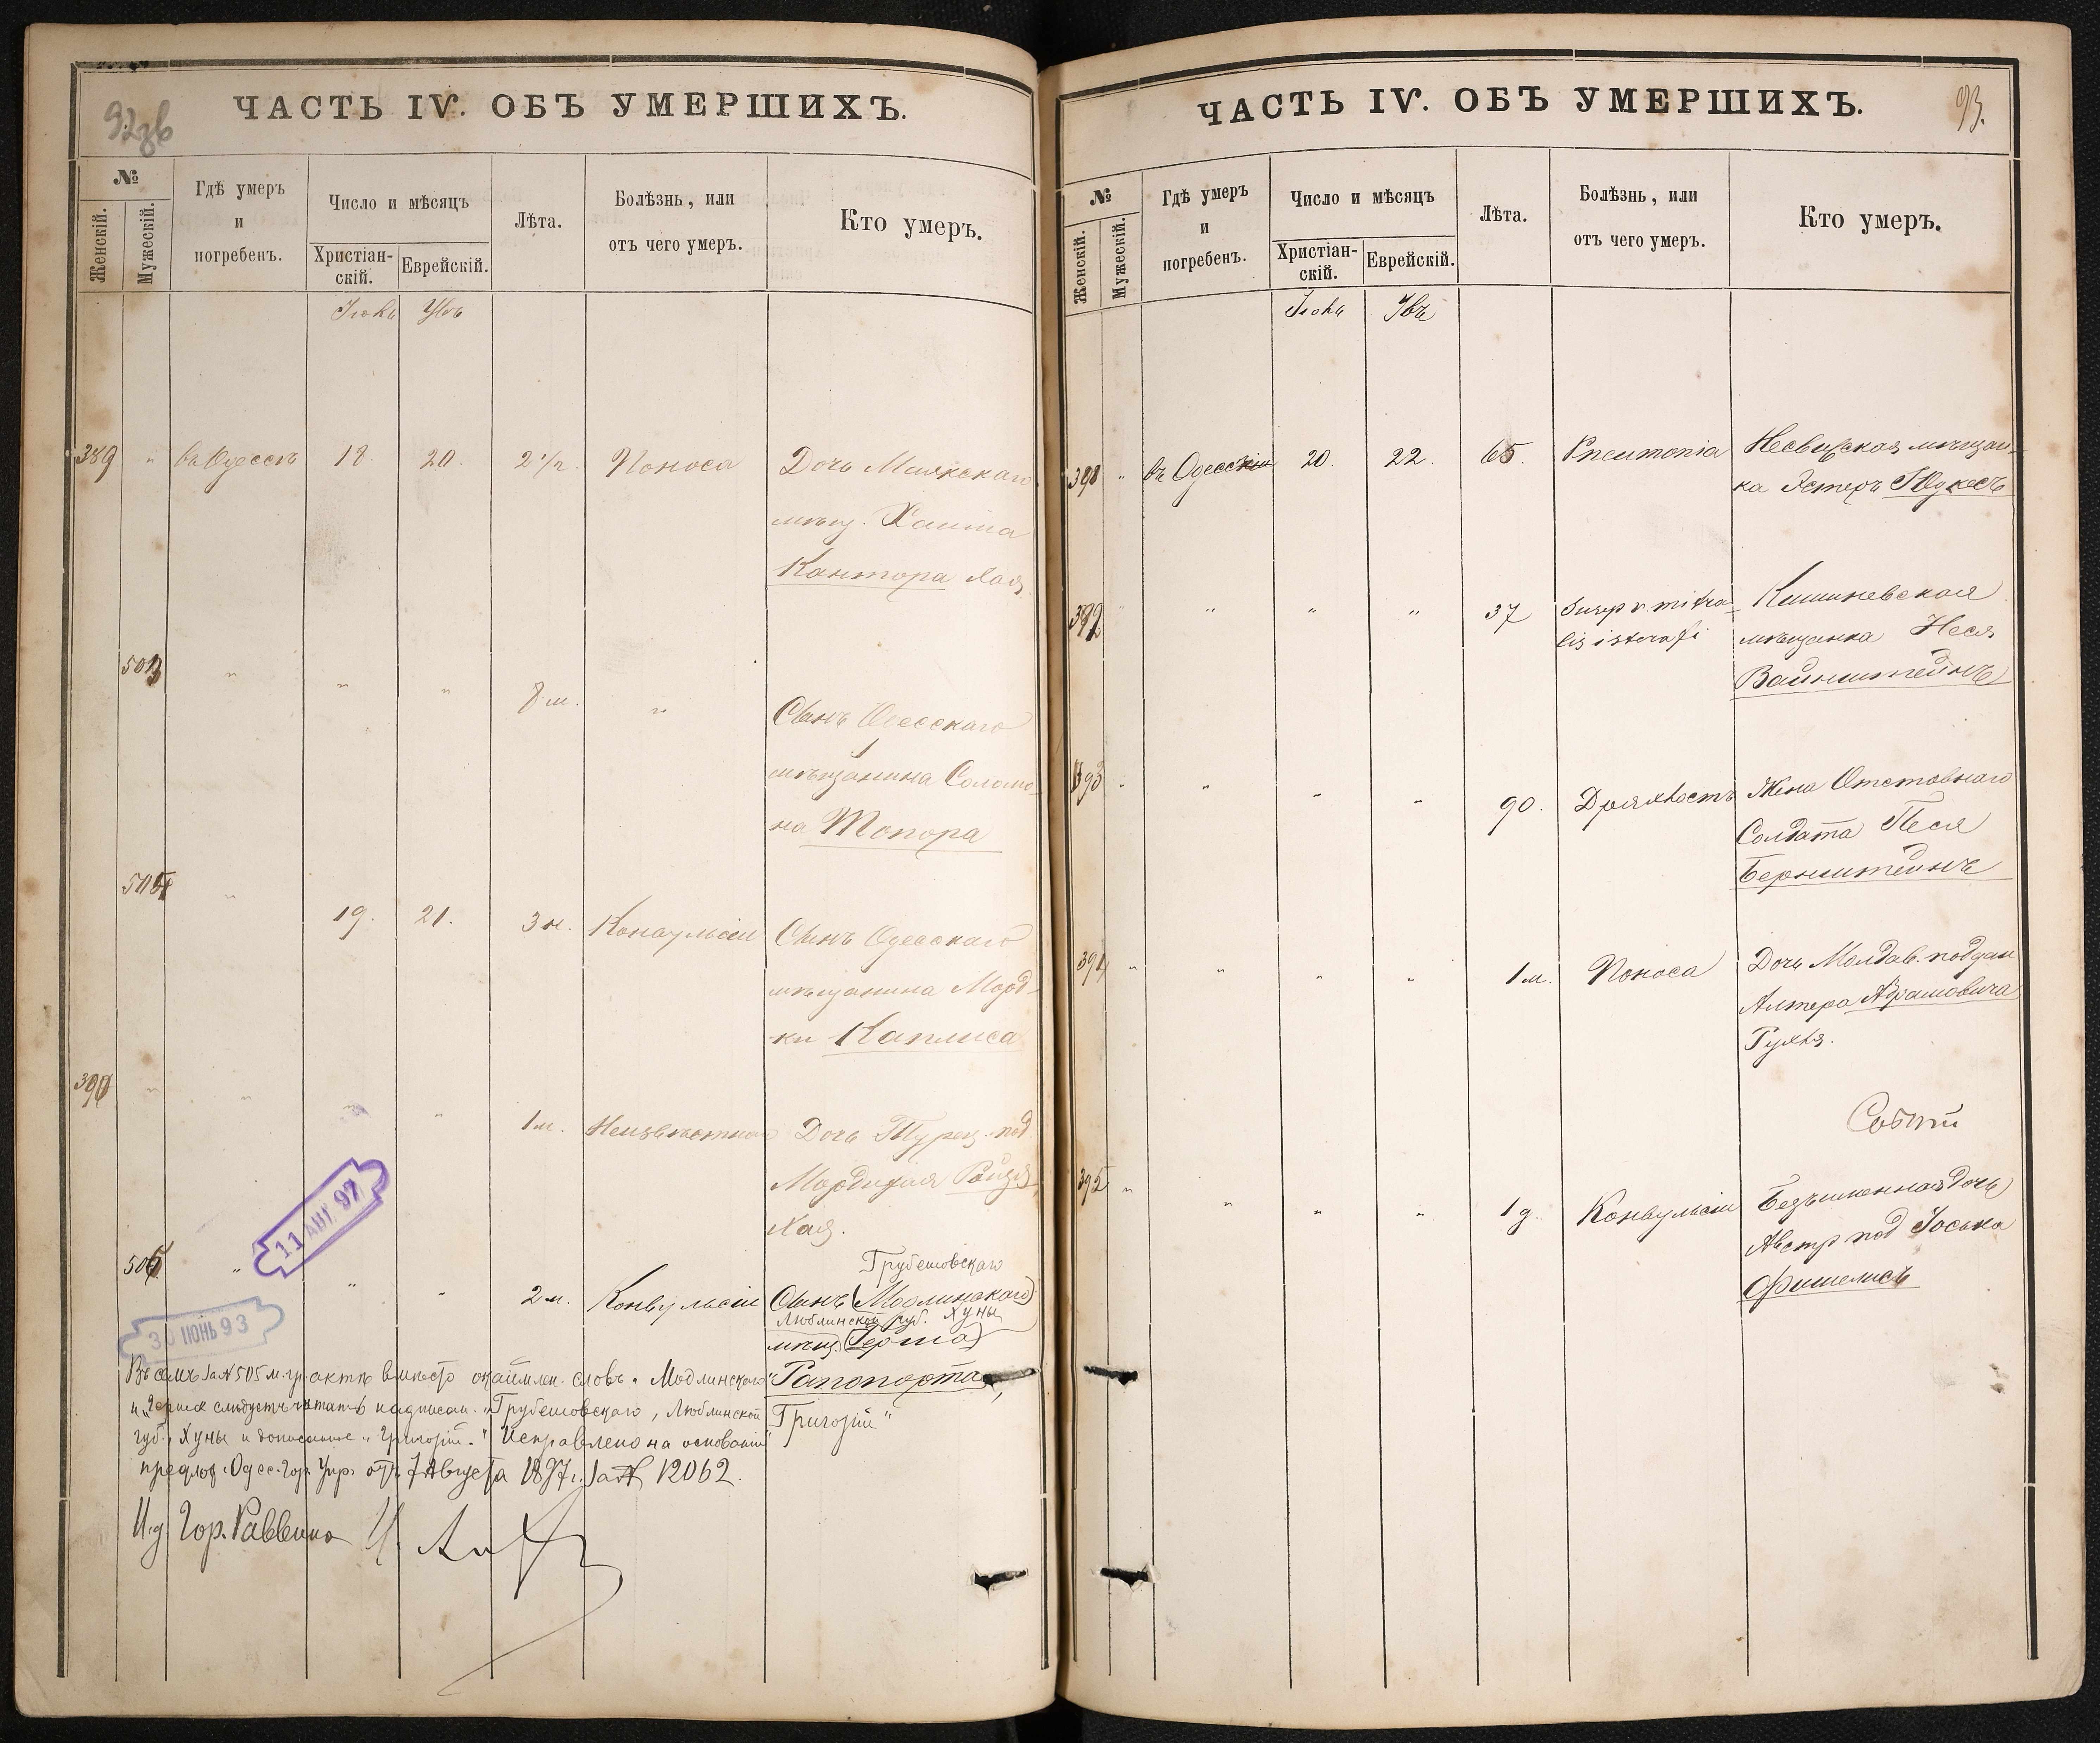 92об
ЧАСТЬ IV. ОБЪ УМЕРШИХЪ.
№
Женскій.
Мужескій.
Гдѣ умеръ
и
погребенъ.
Число и мѣсяцъ
Христіан-
скій.
Еврейскій.
Лѣта.
Болѣзнь, или
отъ чего умеръ.
Кто умеръ.
389 " въ Одессѣ 18. 20. 2 1/2. Поноса Дочь Маякскаго
мѣщ. Хаима
Кантора Хая
503 " " " 8 м. " Сынъ Одесскаго
мѣщанина Соломо-
на Топора
504 " 19. 21. 3 н. Конвульсіи Сынъ Одесскаго
мѣщанина Морд-
ки Каплиса
390 " " " " 1 м. Неизвѣстная Дочь Турец. под.
Мордихая
Хая.
505 " " " 2 м. Конвульсіи Сынъ (Модлинскаго)
Грубешовскаго
Люблинской губ. Хуны
мѣщ. (Герша)
Рапопорта,
Григорій"
11 АВГ. 97
30 ІЮНЬ 93
Въ семъ за № 505 м. гр. актѣ вмѣсто окаймлен. словъ "Модлинскаго"
и "Герша" слѣдуетъ читать надписан. "Грубешовскаго, Люблинской
губ., Хуны и дописанное "Григорій." Исправлено на основаніи
предлож. Одес. Гор. Упр. отъ 7 Августа 1897 г. за № 12062.
И.д. Гор. Раввина
93.
ЧАСТЬ IV. ОБЪ УМЕРШИХЪ.
№
Женскій.
Мужескій.
Гдѣ умеръ
и
погребенъ.
Число и мѣсяцъ
Христіан-
скій.
Еврейскій.
Лѣта.
Болѣзнь, или
отъ чего умеръ.
Кто умеръ.
391 " въ Одессѣ 20. 22. 65. Pneumonia Несвижская мѣщан-
ка Эстеръ
392 " " " " 37 Кишиневская
мѣщанка Неся
Вайнштейнъ
393 " " " " 90. Дряхлость Жена Отставнаго
Солдата Песя
Бернштейнъ
394 " " " " 1 м. Поноса Дочь Молдав. поддан
Алтера Абрамовича
Рухля.
395 " " " " 1 д. Конвульсіи Безъименная дочь
Австр под Іоська
Фишелисъ